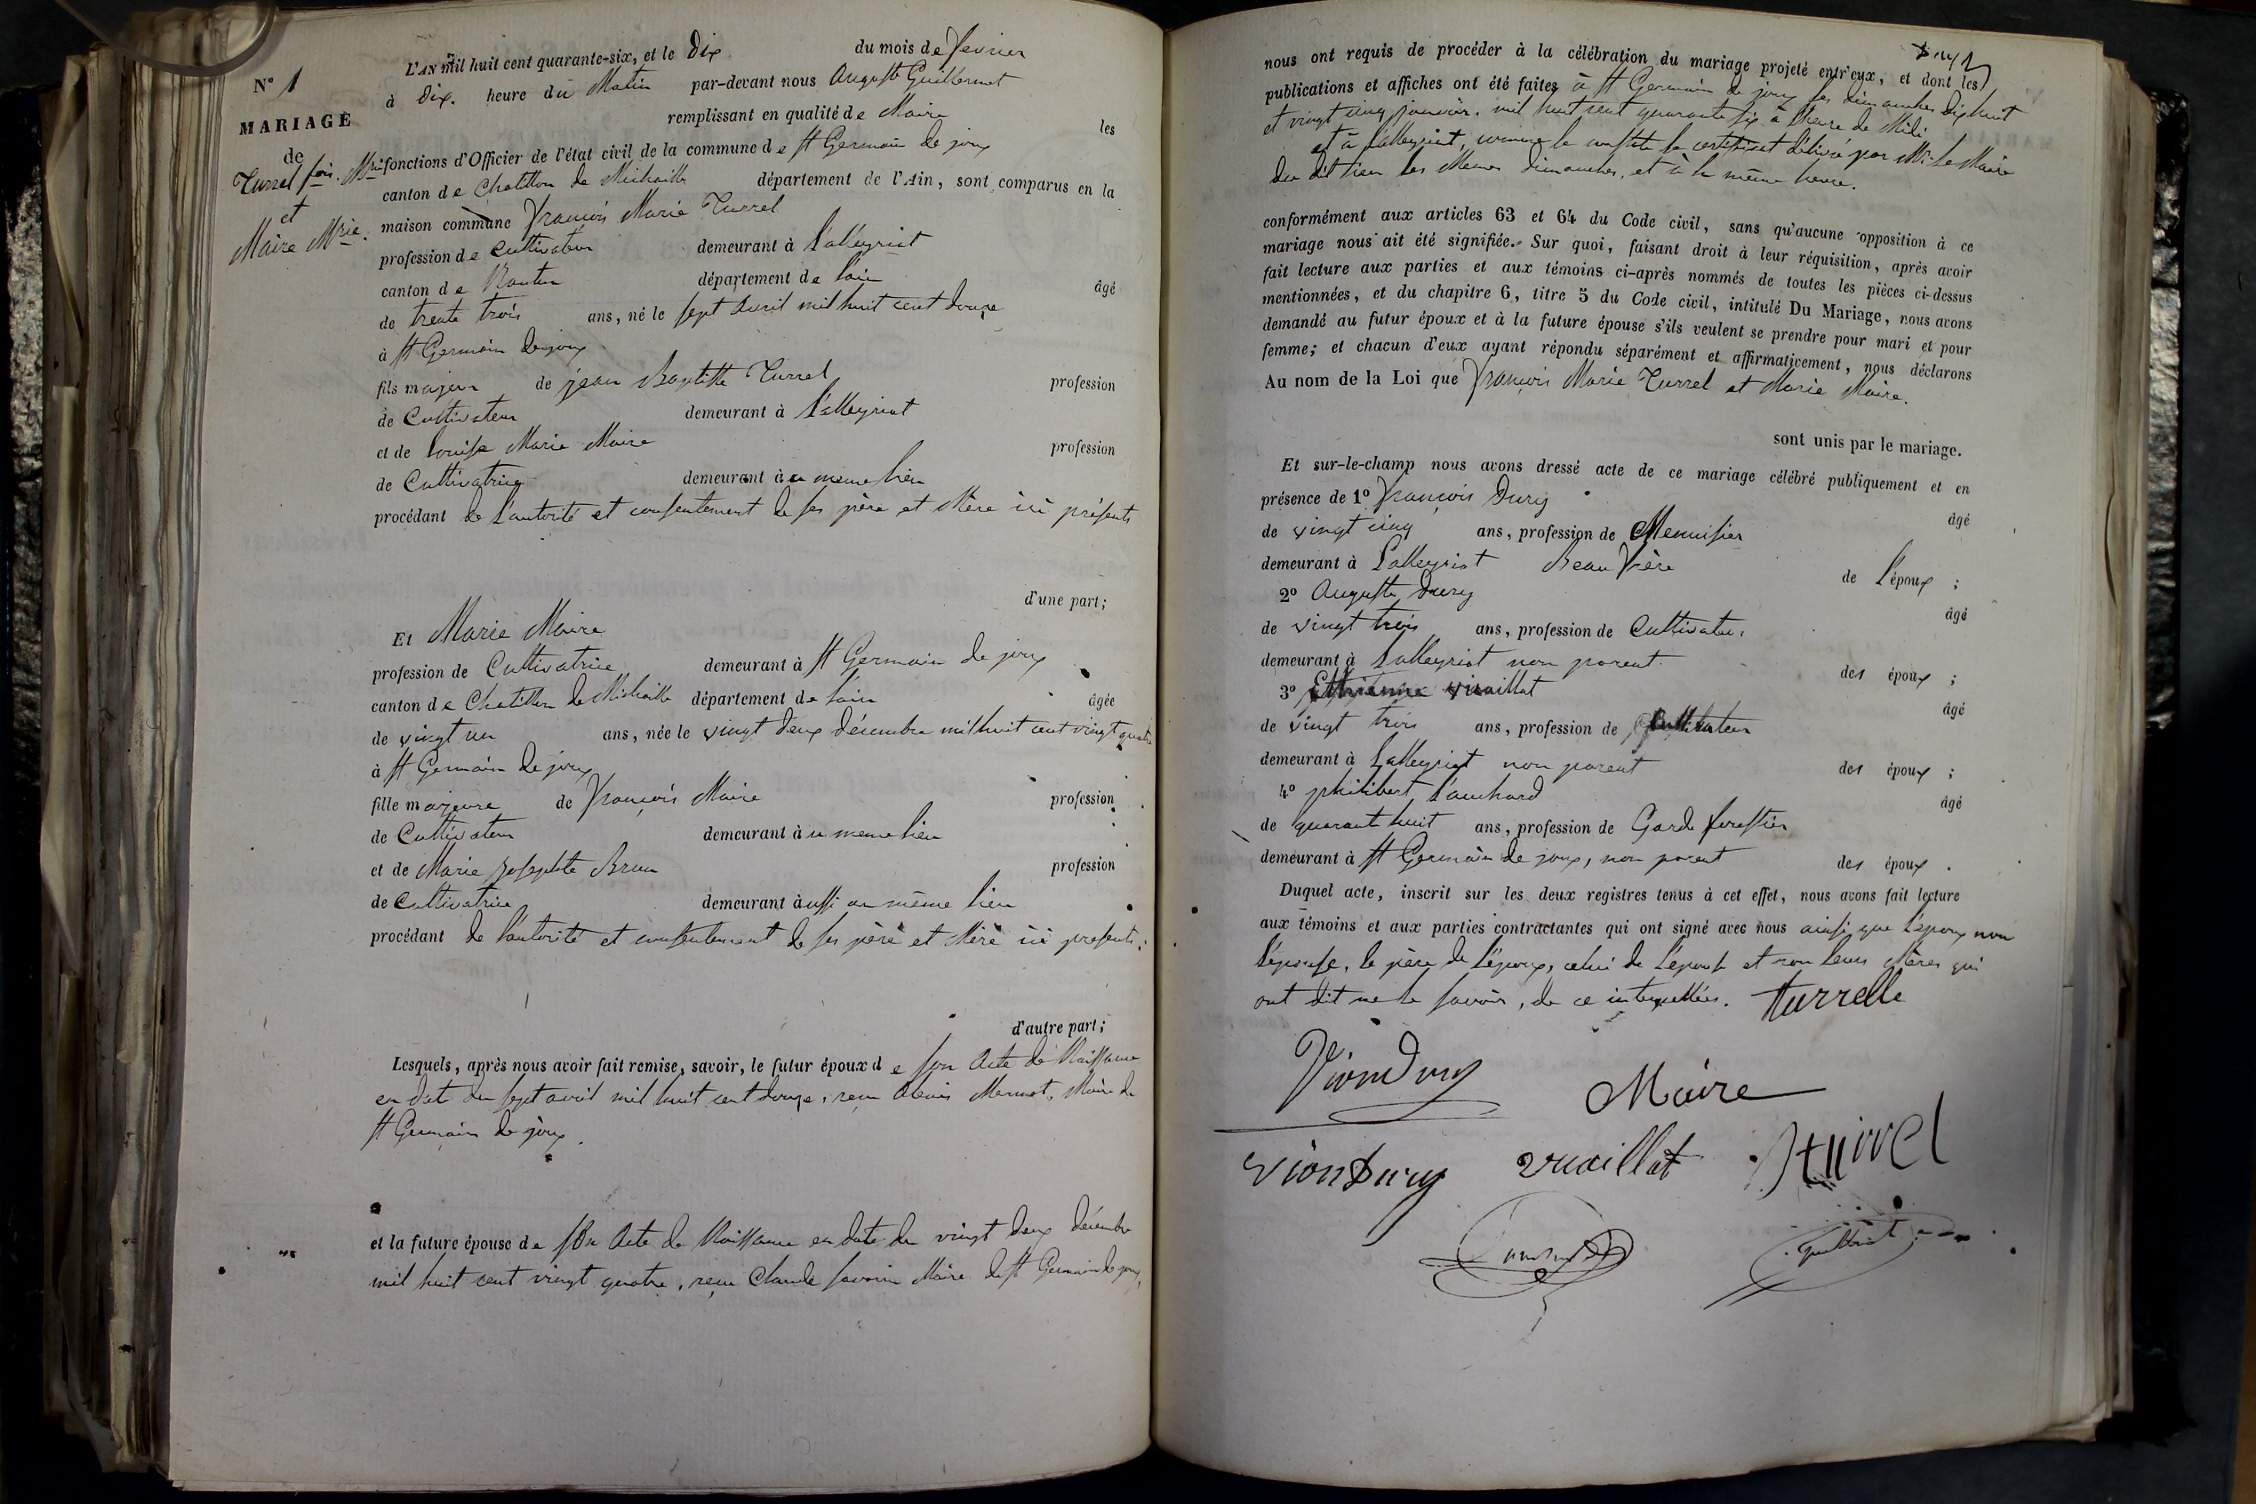 N° 1
MARIAGE
de
Turrel fois. Mrie
et
Maire Mrie.
L'AN mil huit cent quarante-six, et le dix du mois de fevrier
à dix. heure du Matin par-devant nous Auguste Guilloermet
remplissant en qualité de Maire les
fonctions d'Officier de l'état civil de la commune de st Germain de joux
canton de Chatillon de Michaille département de l'Ain, sont comparus en la
maison commune François Marie Turrel
profession de Cultivateur demeurant à Lalleyriat
canton de Nantua département de l'ain âgé
de trente trois ans, né le sept avril mil huit cent douze
à st Germain de joux
fils majeur de jean Baptiste Turrel profession
de Cultivateur demeurant à Lalleyriat
et de louise Marie Maire profession
de Cultivatrice demeurant au meme lieu
procédant de l'autorité et consentement de ses père et Mère ici présents
d'une part;
Et Marie Maire
profession de Cultivatrice demeurant à st Germain de joux
canton de Chatillon de Michaille département de l'ain âgée
de vingt un ans, née le vingt deux décembre mil huit cent vingt quatre
à st Germain de joux
fille majeure de François Maire profession
de Cultivateur demeurant au meme lieu
et de Marie Josephte Brun profession
de Cultivatrice demeurant aussi au même lieu
procédant de l'autorité et consentement de ses père et Mère ici présents;
d'autre part;
Lesquels, après nous avoir fait remise, savoir, le futur époux de son Acte de Naissance
en date du sept avril mil huit cent douze, reçu Alexis Mermet, Maire de
st Germain de joux.
et la future épouse de son Acte de Naissance en date du vingt deux décembre
mil huit cent vingt quatre, reçu Claude Savarin Maire de st Germain de joux,
nous ont requis de procéder à la célébration du mariage projeté entr'eux, et dont les
publications et affiches ont été faites à st Germain de joux les dimanches dix huit
et vingt cinq janvier, mil huit cent quarante six à l'heure de Midi
et à Lalleyriat, comme le constate le certificat délivré par Mr. le Maire
du dit lieu les Memes dimanches, et à la même heure.
conformément aux articles 63 et 64 du Code civil, sans qu'aucune opposition à ce
mariage nous ait été signifiée. Sur quoi, faisant droit à leur réquisition, après avoir
fait lecture aux parties et aux témoins ci-après nommés de toutes les pièces ci-dessus
mentionnées, et du chapitre 6, titre 5 du Code civil, intitulé Du Mariage, nous avons
demandé au futur époux et à la future épouse s'ils veulent se prendre pour mari et pour
femme; et chacun d'eux ayant répondu séparément et affirmativement, nous déclarons
Au nom de la Loi que François Marie Turrel et Marie Maire.
sont unis par le mariage.
Et sur-le-champ nous avons dressé acte de ce mariage célébré publiquement et en
présence de 1° François Dury âgé
de vingt cinq ans, profession de Menuisier
demeurant à Lalleyriat Beau frère de l'époux;
2° Auguste Dury âgé
de vingt trois ans, profession de Cultivateur
demeurant à Lalleyriat non parent des époux;
3° Ethienne vuaillat âgé
de vingt trois ans, profession de Cultivateur
demeurant à Lalleyriat non parent des époux;
4° philibert Lanchard âgé
de quarante huit ans, profession de Garde forestier
demeurant à st Germain de joux, non parent des époux.
Duquel acte, inscrit sur les deux registres tenus à cet effet, nous avons fait lecture
aux témoins et aux parties contractantes qui ont signé avec nous ainsi que l'époux non
l'épouse, le père de l'époux, celui de l'épouse et non leurs Mères qui
ont dit ne le savoir, de ce interpellées. turrelle
Viondury
Maire
vionDury vuaillat turrel